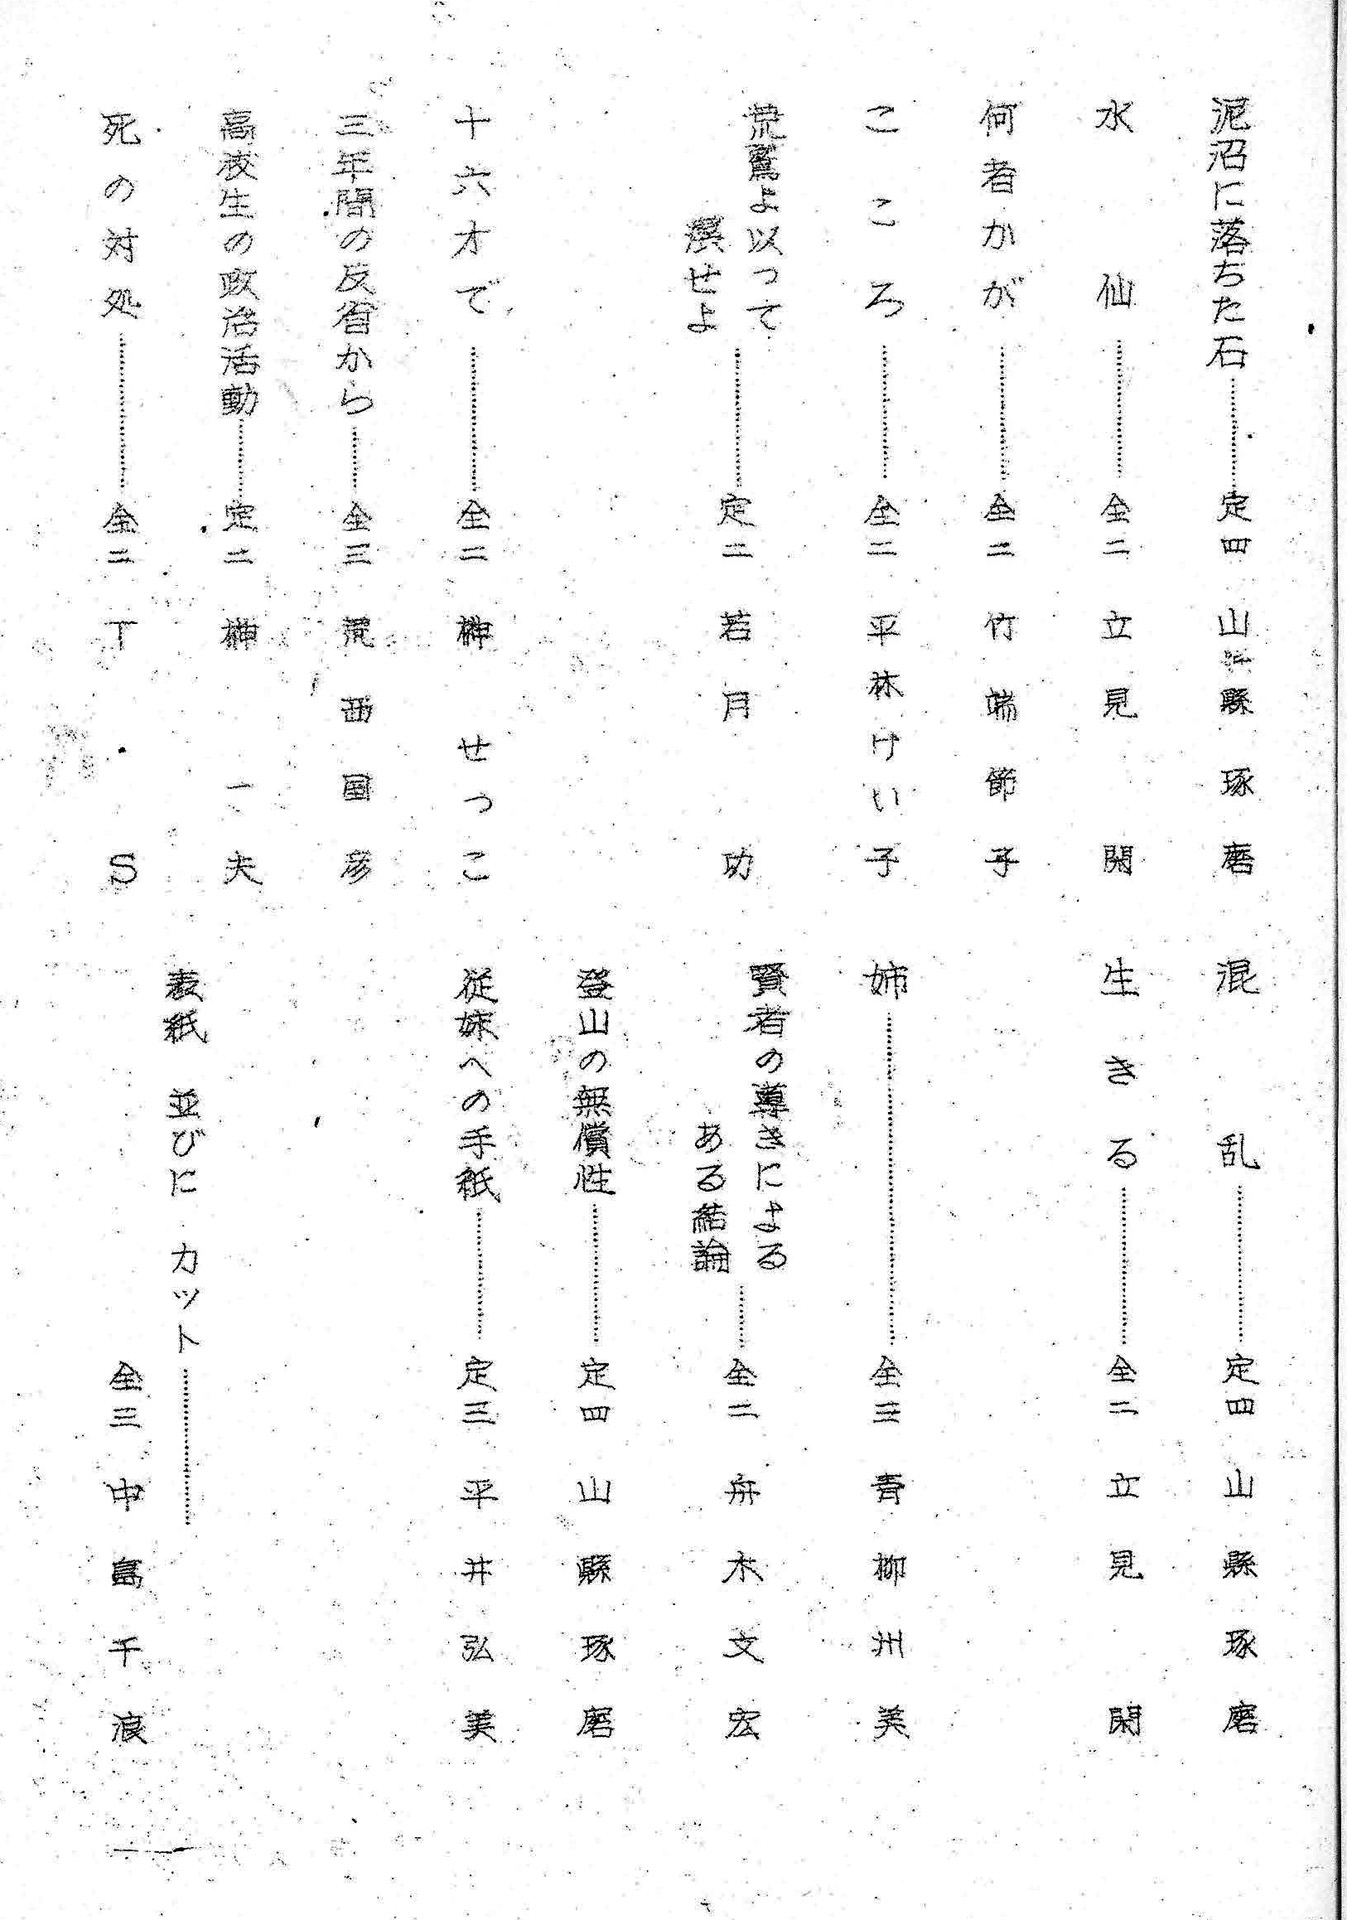 泥沼に落ちた石………定四 山縣琢磨
水仙………全二 立見閑
何者かが………全二 竹端節子
こころ………全二 平林けい子
荒鷲よ以って
瞑せよ………定二 若月功
十六才で………全二 榊せっこ
三年間の反省から………全三 荒西国彦
高校生の政治活動………定二 榊一夫
死の対処………全二 T・S
混乱………定四 山縣琢磨
生きる………全二 立見閑
姉………全三 青柳州美
賢者の導きによる
ある結論………全二 舟木文宏
登山の無償性………定四 山縣琢磨
従妹への手紙………定三 平井弘美
表紙 並びに カット………
全三 中島千浪